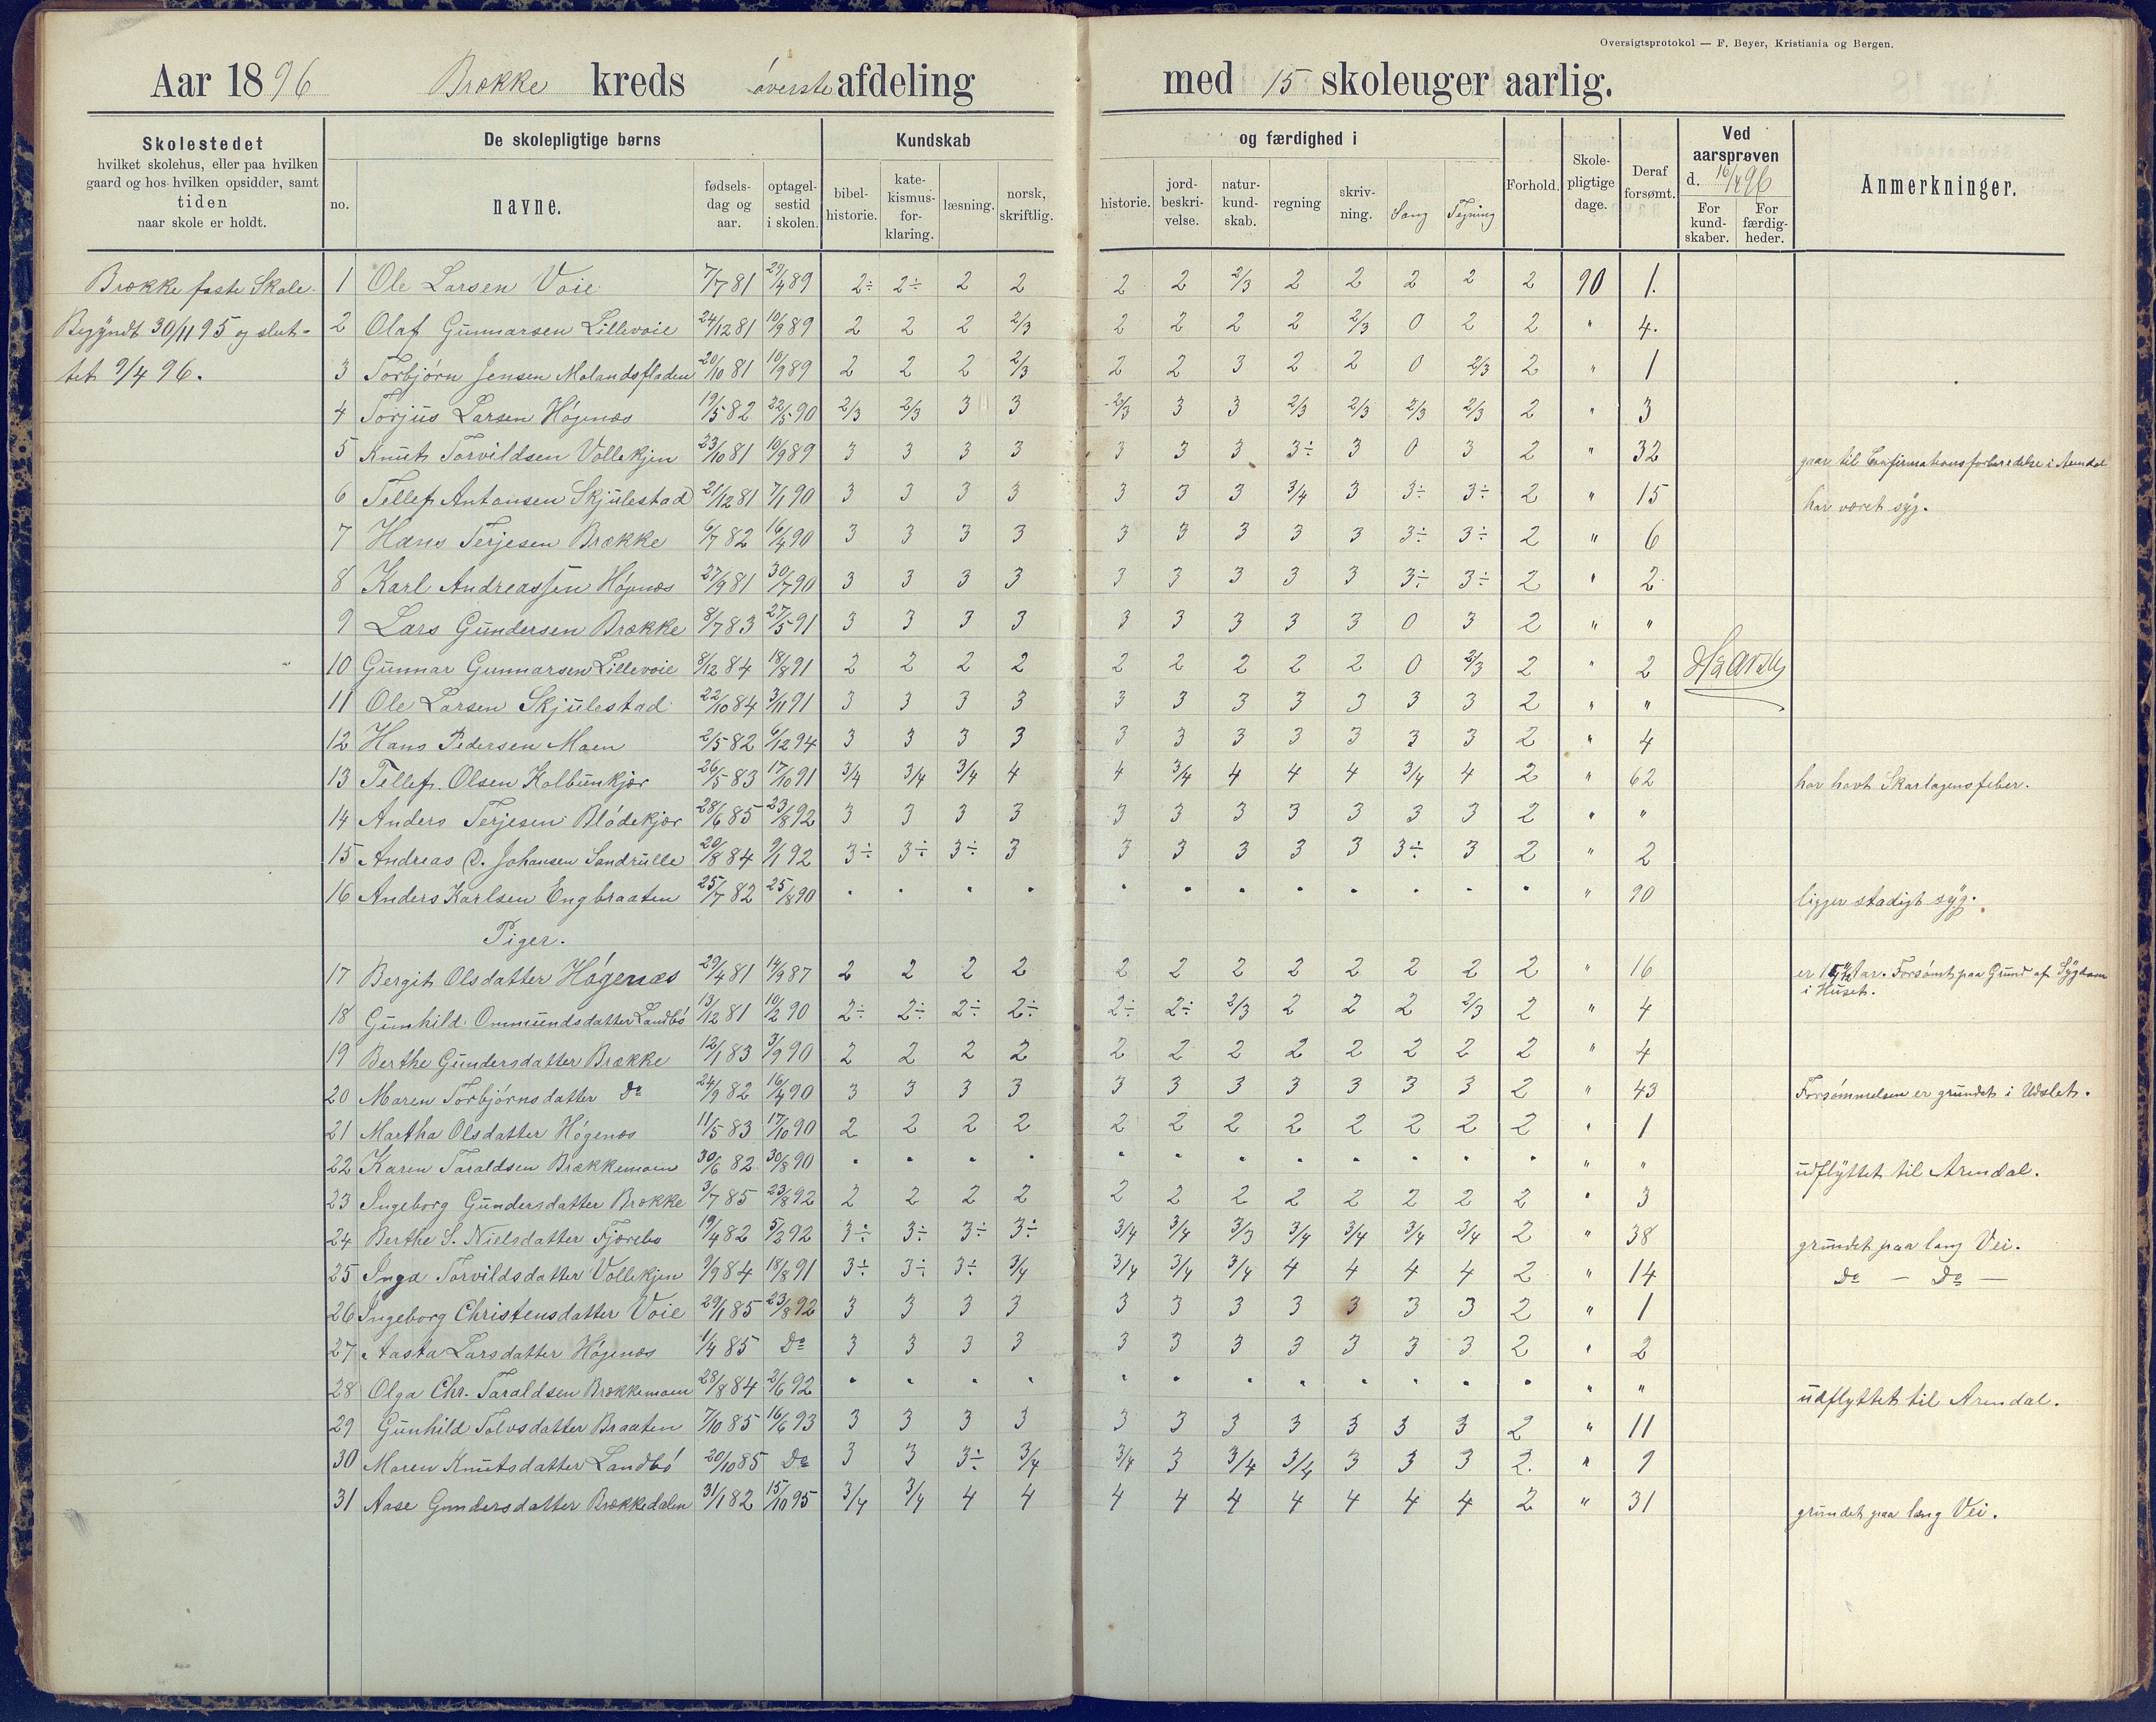 Oversigtsprotokol — F. Beyer, Kristiania og Bergen.
Aar 1896 Brække kreds øverste afdeling med 15 skoleuger aarlig.
Skolestedet hvilket skolehus, eller paa hvilken gaard og hos hvilken opsidder, samt tiden naar skole er holdt.
De skolepligtige børns
no. navne. fødsels-dag og aar. optagel-sestid i skolen.
Kundskab og færdighed i
bibel-historie. kate-kismus-for-klaring. læsning. norsk, skriftlig. historie. jord-beskri-velse. natur-kund-skab. regning skriv-ning. Sang Tegning
Forhold. Skole-pligtige dage. Deraf forsømt.
Ved aarsprøven d. 16/4 96
For kund-skaber. For færdig-heder.
Anmerkninger.
Brække faste Skole.
Begyndt 30/11 95 og slut-
tet 9/4 96.
1 Ole Larsen Voie 7/7 81 29/4 89 2÷ 2÷ 2 2 2 2 2/3 2 2 2 2 2 90 1.
2 Olaf Gunnarsen Lillevoie 24/12 81 10/9 89 2 2 2 2/3 2 2 2 2 2/3 0 2 2 " 4.
3 Torbjørn Jensen Molandsfladen 20/10 81 10/9 89 2 2 2 2/3 2 2 3 2 2 0 2/3 2 " 1
4 Torjus Larsen Høgenæs 19/5 82 22/5 90 2/3 2/3 3 3 2/3 3 3 2/3 2/3 2/3 2/3 2 " 3
5 Knut Torvildsen Vollekjen 23/10 81 10/9 89 3 3 3 3 3 3 3 3÷ 3 0 3 2 " 32 gaar til Confirmationsforberedelse i Arendal
6 Tellef Antonsen Skjulestad 21/12 81 7/1 90 3 3 3 3 3 3 3 3/4 3 3÷ 3÷ 2 " 15 har været syg.
7 Hans Terjesen Brække 6/7 82 16/4 90 3 3 3 3 3 3 3 3 3 3÷ 3÷ 2 " 6
8 Karl Andreassen Høgenæs 27/9 81 30/7 90 3 3 3 3 3 3 3 3 3 3÷ 3÷ 2 " 2
9 Lars Gundersen Brække 8/7 83 27/5 91 3 3 3 3 3 3 3 3 3 0 3 2 " "
10 Gunnar Gunnarsen Lillevoie 8/12 84 18/8 91 2 2 2 2 2 2 2 2 2 0 2/3 2 " 2
11 Ole Larsen Skjulestad 22/10 84 3/11 91 3 3 3 3 3 3 3 3 3 3 3 2 " "
12 Hans Pedersen Moen 2/5 82 6/12 94 3 3 3 3 3 3 3 3 3 3 3 2 " 4
13 Tellef Olsen Kalbunkjær 26/5 83 17/10 91 3/4 3/4 3/4 4 4 3/4 4 4 4 3/4 4 2 " 62 har havt Skarlagensfeber.
14 Anders Terjesen Blødekjær 28/6 85 23/8 92 3 3 3 3 3 3 3 3 3 3 3 2 " "
15 Andreas C. Johansen Sandrulle 20/8 84 9/1 92 3÷ 3÷ 3÷ 3 3 3 3 3 3 3÷ 3 2 " 2
16 Anders Karlsen Engbraaten 25/7 82 25/8 90 " " " " " " " " " " " " " 90 ligger stadigt syg.
Piger.
17 Bergit Olsdatter Høgenæs 29/4 81 14/9 87 2 2 2 2 2 2 2 2 2 2 2 2 " 16 er Aar. Forsømt paa Grund af Sygdom i Huset.
18 Gunhild Ommundsdatter Landbø 13/12 81 10/2 90 2÷ 2÷ 2÷ 2÷ 2÷ 2÷ 2/3 2 2 2 2/3 2 " 4
19 Berthe Gundersdatter Brække 12/1 83 3/9 90 2 2 2 2 2 2 2 2 2 2 2 2 " 4
20 Maren Torbjørnsdatter Do 24/9 82 16/4 90 3 3 3 3 3 3 3 3 3 3 3 2 " 43 Forsømmelsen er grundet i Udslet.
21 Martha Olsdatter Høgenæs 11/5 83 17/10 90 2 2 2 2 2 2 2 2 2 2 2 2 " 1
22 Karen Taraldsen Brækkemoen 30/6 82 30/8 90 " " " " " " " " " " " " " " udflyttet til Arendal.
23 Ingeborg Gundersdatter Brække 3/7 85 23/8 92 2 2 2 2 2 2 2 2 2 2 2 2 " 3
24 Berthe S. Nielsdatter Fjærebo 19/4 82 5/2 92 3÷ 3÷ 3÷ 3÷ 3/4 3/4 3/3 3/4 3/4 3/4 3/4 2 " 38 grundet paa lang Vei.
25 Inga Torvildsdatter Vollekjen 9/9 84 18/8 91 3÷ 3÷ 3÷ 3/4 3/4 3/4 3/4 4 4 4 4 2 " 14 Do — Do —
26 Ingeborg Christensdatter Voie 29/1 85 23/8 92 3 3 3 3 3 3 3 3 3 3 3 2 " 1
27 Aasta Larsdatter Høgenæs 1/4 85 Do 3 3 3 3 3 3 3 3 3 3 3 2 " 2
28 Olga Chr. Taraldsen Brækkemoen 28/8 84 2/6 92 " " " " " " " " " " " " " " udflyttet til Arendal.
29 Gunhild Tolvsdatter Braaten 7/10 85 16/6 93 3 3 3 3 3 3 3 3 3 3 3 2 " 11
30 Maren Knutsdatter Landbø 20/10 85 Do 3 3 3÷ 3/4 3/4 3 3/4 3/4 3 3 3 2. " 9
31 Aase Gundersdatter Brækkedalen 31/1 82 15/10 95 3/4 3/4 4 4 4 4 4 4 4 4 4 2 " 31 grundet paa lang Vei.